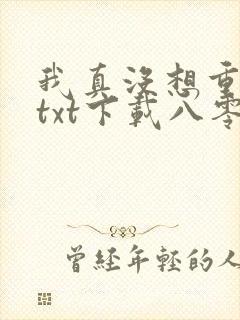 我真没想重
txt下载八零
曾經年輕的人